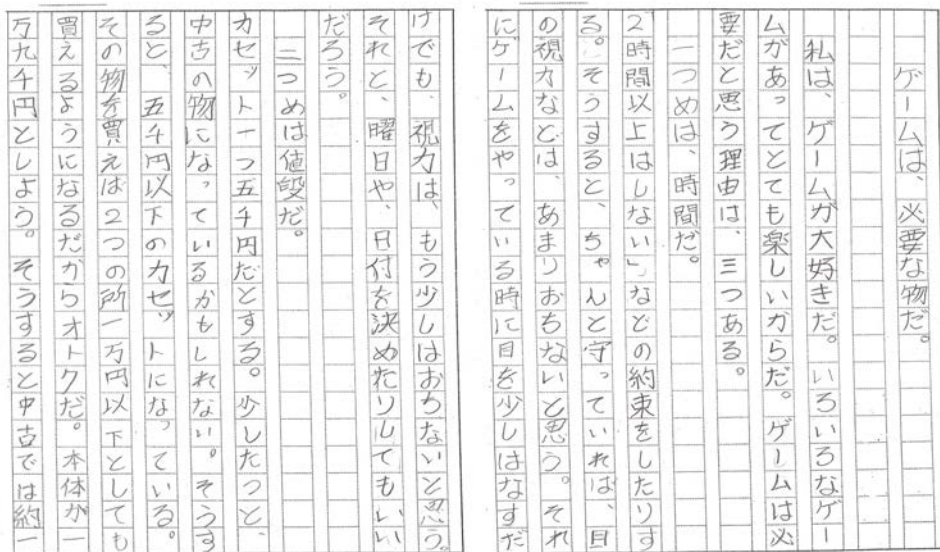 ゲームは、必要な物だ。
私は、ゲームが大好きだ。いろいろなゲー
ムがあってとても楽しいからだ。ゲームは必
要だと思う理由は、三つある。
一つめは、時間だ。
「2時間以上はしない」などの約束をしたりす
る。そうすると、ちゃんと守っていれば、目
の視力などは、あまりおちないと思う。それ
にゲームをやっている時に目を少しはなすだ
けでも、視力は、もう少しはおちないと思う。
それと、曜日や、日付を決めたりしてもいい
だろう。
二つめは値段だ。
カセット一つ五千円だとする。少したつと、
中古の物になっているかもしれない。そうす
ると、五千円以下のカセットになっている。
その物を買えば2つの所一万円以下としても
買えるようになるだからオトクだ。本体が一
万九千円としよう。そうすると中古では約一